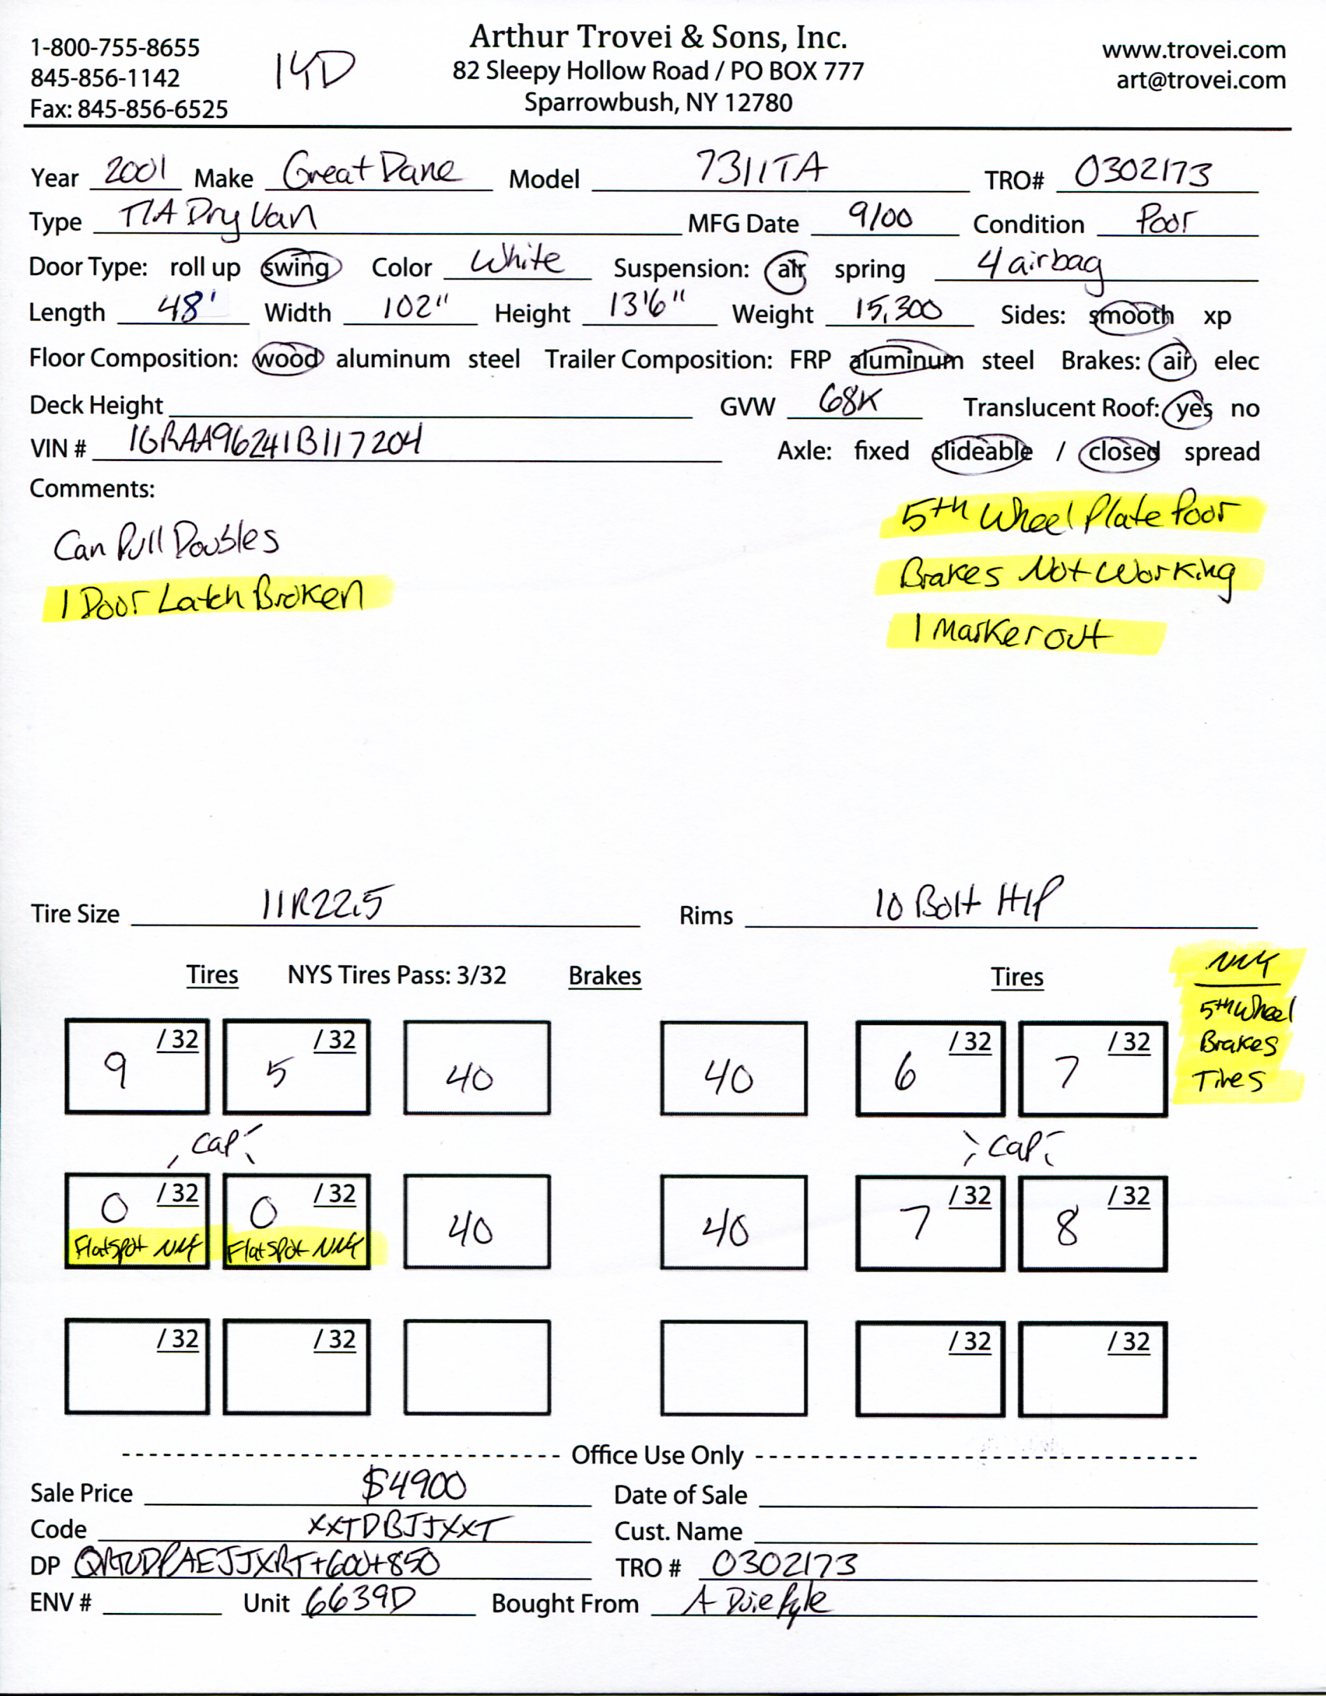 Arthur Trovei & Sons, Inc.
1-800-755-8655
845-856-1142
Fax: 845-856-6525
14D
82 Sleepy Hollow Road / PO BOX 777
Sparrowbush, NY 12780
www.trovei.com
art@trovei.com
Year 2001 Make Great Dane Model 7311TA TRO# 0302173
Type T/A Dry Van MFG Date 9/00 Condition Poor
Door Type: roll up swing Color White Suspension: air spring 4 airbag
Length 48' Width 102" Height 13'6" Weight 15,300 Sides: smooth xp
Floor Composition: wood aluminum steel Trailer Composition: FRP aluminum steel Brakes: air elec
Deck Height GVW 68K Translucent Roof: yes no
VIN # 1GRAA96241B117204 Axle: fixed slideable / closed spread
Comments:
Can Pull Doubles
1 Door Latch Broken
5th Wheel Plate Poor
Brakes Not Working
1 Marker out
Tire Size 11R22.5 Rims 10 Bolt H/P
Tires NYS Tires Pass: 3/32 Brakes Tires
5th Wheel
Brakes
Tires
9 /32 5 /32 40 40 6 /32 7 /32
Cap Cap
0 /32 0 /32 40 40 7 /32 8 /32
Flatspot Flatspot
/32 /32 /32 /32
Office Use Only
Sale Price $4900 Date of Sale
Code XXTDBJJXXT Cust. Name
DP +600+850 TRO # 0302173
ENV # Unit 6639D Bought From A Duie Pyle